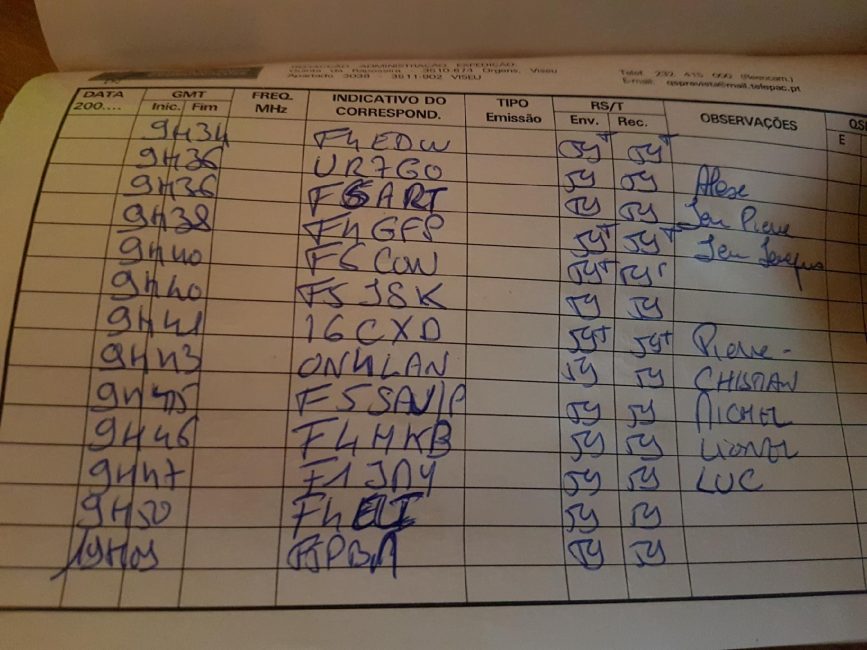 REDACÇÃO, ADMINISTRAÇÃO, EXPEDIÇÃO:
Quinta da Raposeira 3510-674 Orgens, Viseu
Apartado 3038 - 3511-902 VISEU
Telef. 232 415 000
E-mail: qsprevista@mail.telepac.pt
DATA 200.... GMT Inic. Fim FREQ. MHz INDICATIVO DO CORRESPOND. TIPO Emissão RS/T Env. Rec. OBSERVAÇÕES E
9H34 F4EDW 59+ 59+
9H36 UR7GO 59 59 Alexe
9H36 F6ART 59 59 Jeu Pieue
9H38 F4GFP 59+ 59+ Jeu
9H40 F6COW 59+ 59+
9H40 F5JSK 59 59
9H41 I6CXD 59+ 59+ Pieue -
9H43 ON4LAN 59 59 CHISTIAN
9H45 F5SAV/P 59 59 MICHEL
9H46 F4HKB 59 59 LIONEL
9H47 F1JNY 59 59 LUC
9H50 F4ELI 59 59
19H09 59 59